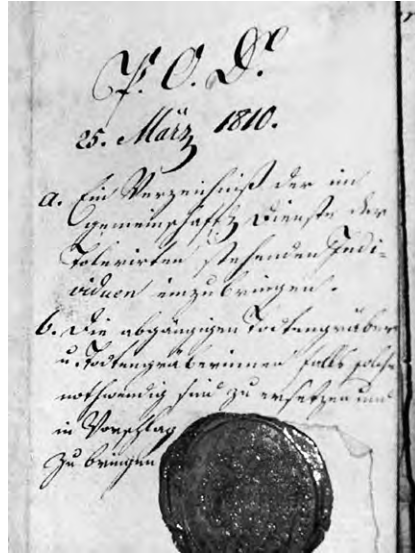 P. O. Dº
25. März 1810.
a. Ein Verzeichniß der im
gemeinschaftz Dienste der
Tolerirten stehenden Indi-
viduen einzubringen.
b. die abgängigen Todtengräber
u. Todtengräberinnen falls solche
nothwendig sind zu ersetzen und
in Vorschlag
zu bringen